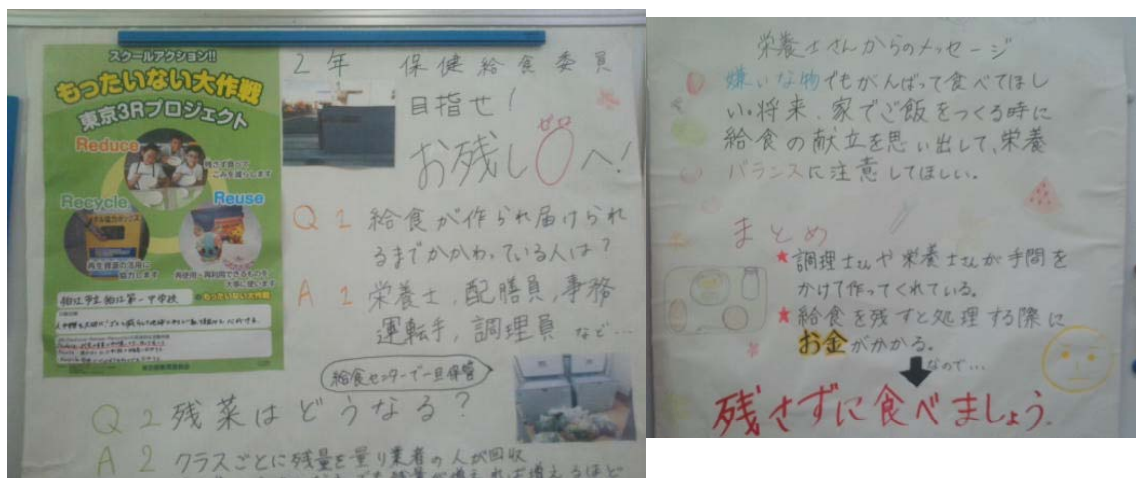 スクールアクション!!
もったいない大作戦
東京3Rプロジェクト
Reduce
残さず食べて
ごみを減らします
Recycle
Reuse
再生資源の活用に
協力します
再使用・再利用できるものを
大事に使います
もったいない大作戦
狛江市立狛江第一中学校
2年 保健給食委員
目指せ!
お残し0へ!
ゼロ
Q1 給食が作られ届けられ
るまでかかわっている人は?
A1 栄養士、配膳員、事務
運転手、調理員 など…
給食センターで一旦保管
Q2 残菜はどうなる?
A2 クラスごとに残量を量り業者の人が回収
栄養士さんからのメッセージ
嫌いな物でもがんばって食べてほし
い。将来、家でご飯をつくる時に
給食の献立を思い出して、栄養
バランスに注意してほしい。
まとめ
★調理士さんや栄養士さんが手間を
かけて作ってくれている。
★給食を残すと処理する際に
お金がかかる。
なので…
残さずに食べましょう。